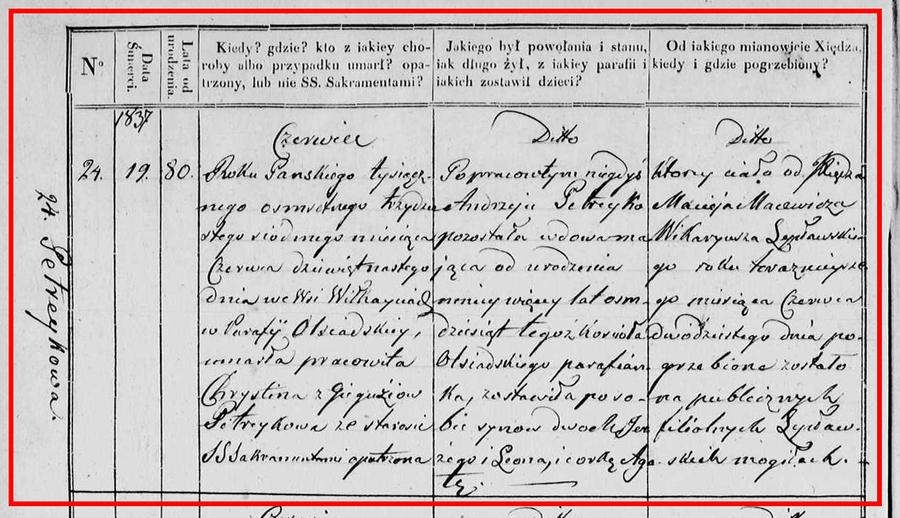 N°
Data Śmierci.
Lata od urodzenia.
Kiedy? gdzie? kto z iakiey cho-
roby albo przypadku umarł? opa-
trzony, lub nie SS. Sakramentami?
Jakiego był powołania i stanu,
iak długo żył, z iakiey parafii i
iakich zostawił dzieci?
Od iakiego mianowicie Xiędza,
kiedy i gdzie pogrzebiony?
1837
24.
19.
80.
24. Petreykowa.
Czerwiec
Roku Pańskiego tysiącz-
nego osmsetnego trzydzie
stego siodmego miesiąca
Czerwca dziewiętnastego
dnia we Wsi
w Parafij Olsiadzkiey,
umarła pracowita
Chrystina z
Petreykowa ze starości
SSSakramentami opatrzona
Ditto
Popracowitym niegdyś
Andrzeju Petreyko
pozostała wdowa ma
jąca od urodzenia
mniey więcey lat osm-
dziesiąt tegoż Kościoła
Olsiadzkiego parafian-
ka, zostawiła po so-
bie synow dwoch Jer
zego i Leona, i corkę Aga
tę.
Ditto
ktorey ciało od Xiędza
Macieja Macewicza
Wikaryusza
go roku teraznieysze
go miesiąca Czerwca
dwódziestego dnia po-
grzebione zostało
na publicznych
filialnych
skich mogiłach.